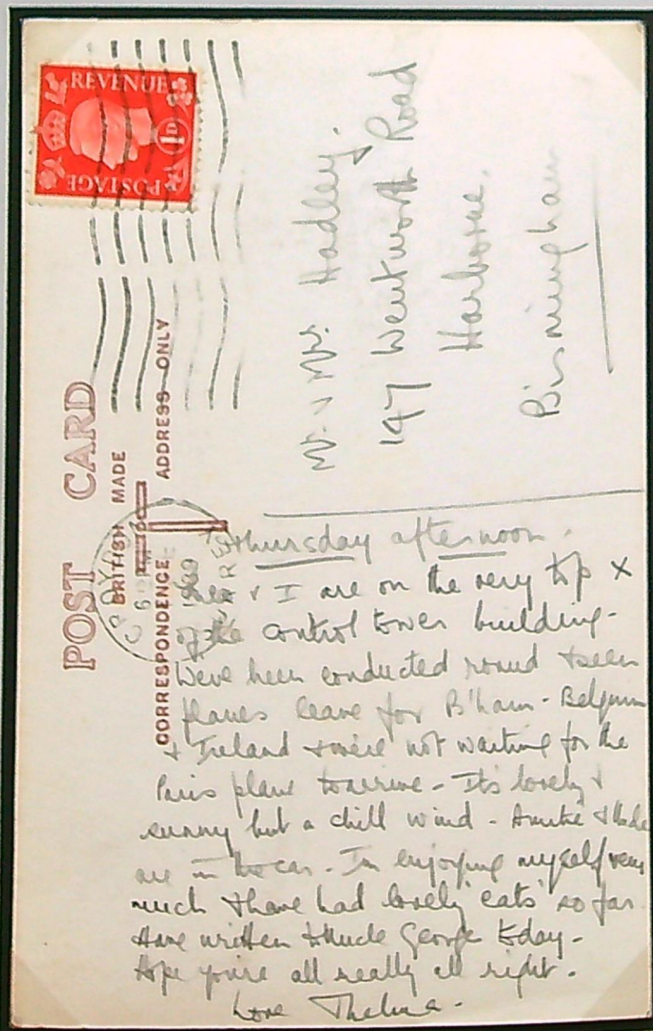 REVENUE
1D
POSTAGE
POST CARD
BRITISH MADE
CORRESPONDENCE
ADDRESS ONLY
CROYDON
SURREY
Mr. & Mrs. Hadley.
197 Wentworth Road
Harborne.
Birmingham
Thursday afternoon.
& I are on the very top x
of the control tower building -
Weve been conducted round & seen
planes leave for B'ham - Belgium
& Ireland & were not waiting for the
Paris plane to arrive - Its lovely &
sunny but a chill wind - Auntie & Uncle
are in the car - Im enjoying myself very
much & have had lovely 'eats' so far
Have written to Uncle George today -
Hope you're all really all right.
Love Thelma -